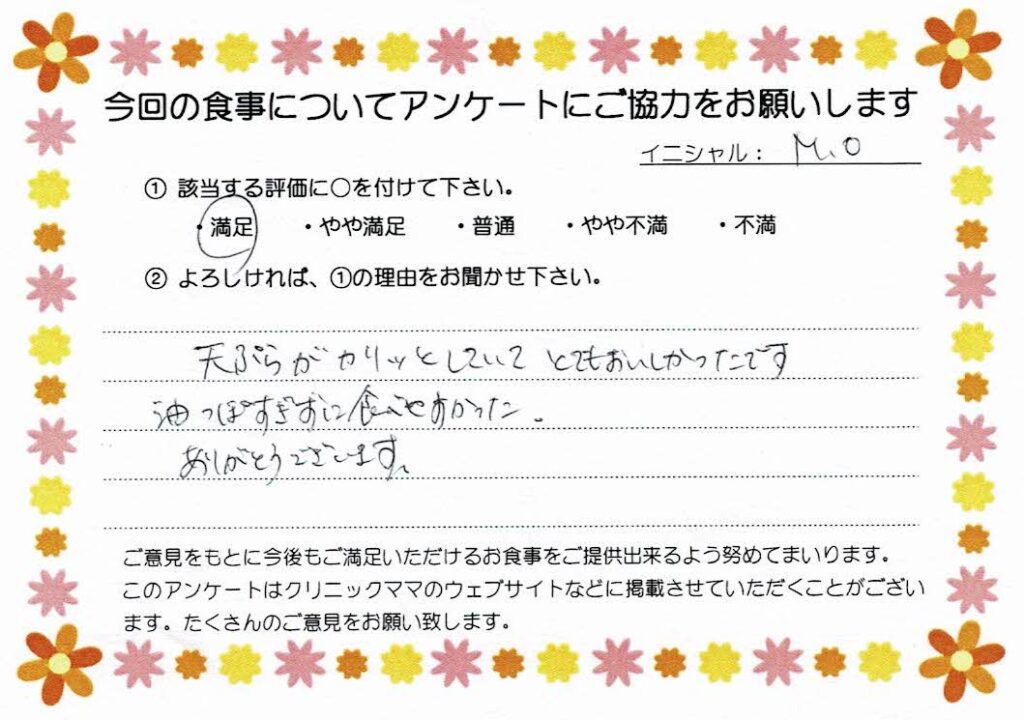 今回の食事についてアンケートにご協力をお願いします
イニシャル： M.O
① 該当する評価に○を付けて下さい。
・満足 ・やや満足 ・普通 ・やや不満 ・不満
② よろしければ、①の理由をお聞かせ下さい。
天ぷらがカリッとしていてとてもおいしかったです
油っぽすぎずに食べやすかった。
ありがとうございます。
ご意見をもとに今後もご満足いただけるお食事をご提供出来るよう努めてまいります。
このアンケートはクリニックママのウェブサイトなどに掲載させていただくことがござい
ます。たくさんのご意見をお願い致します。